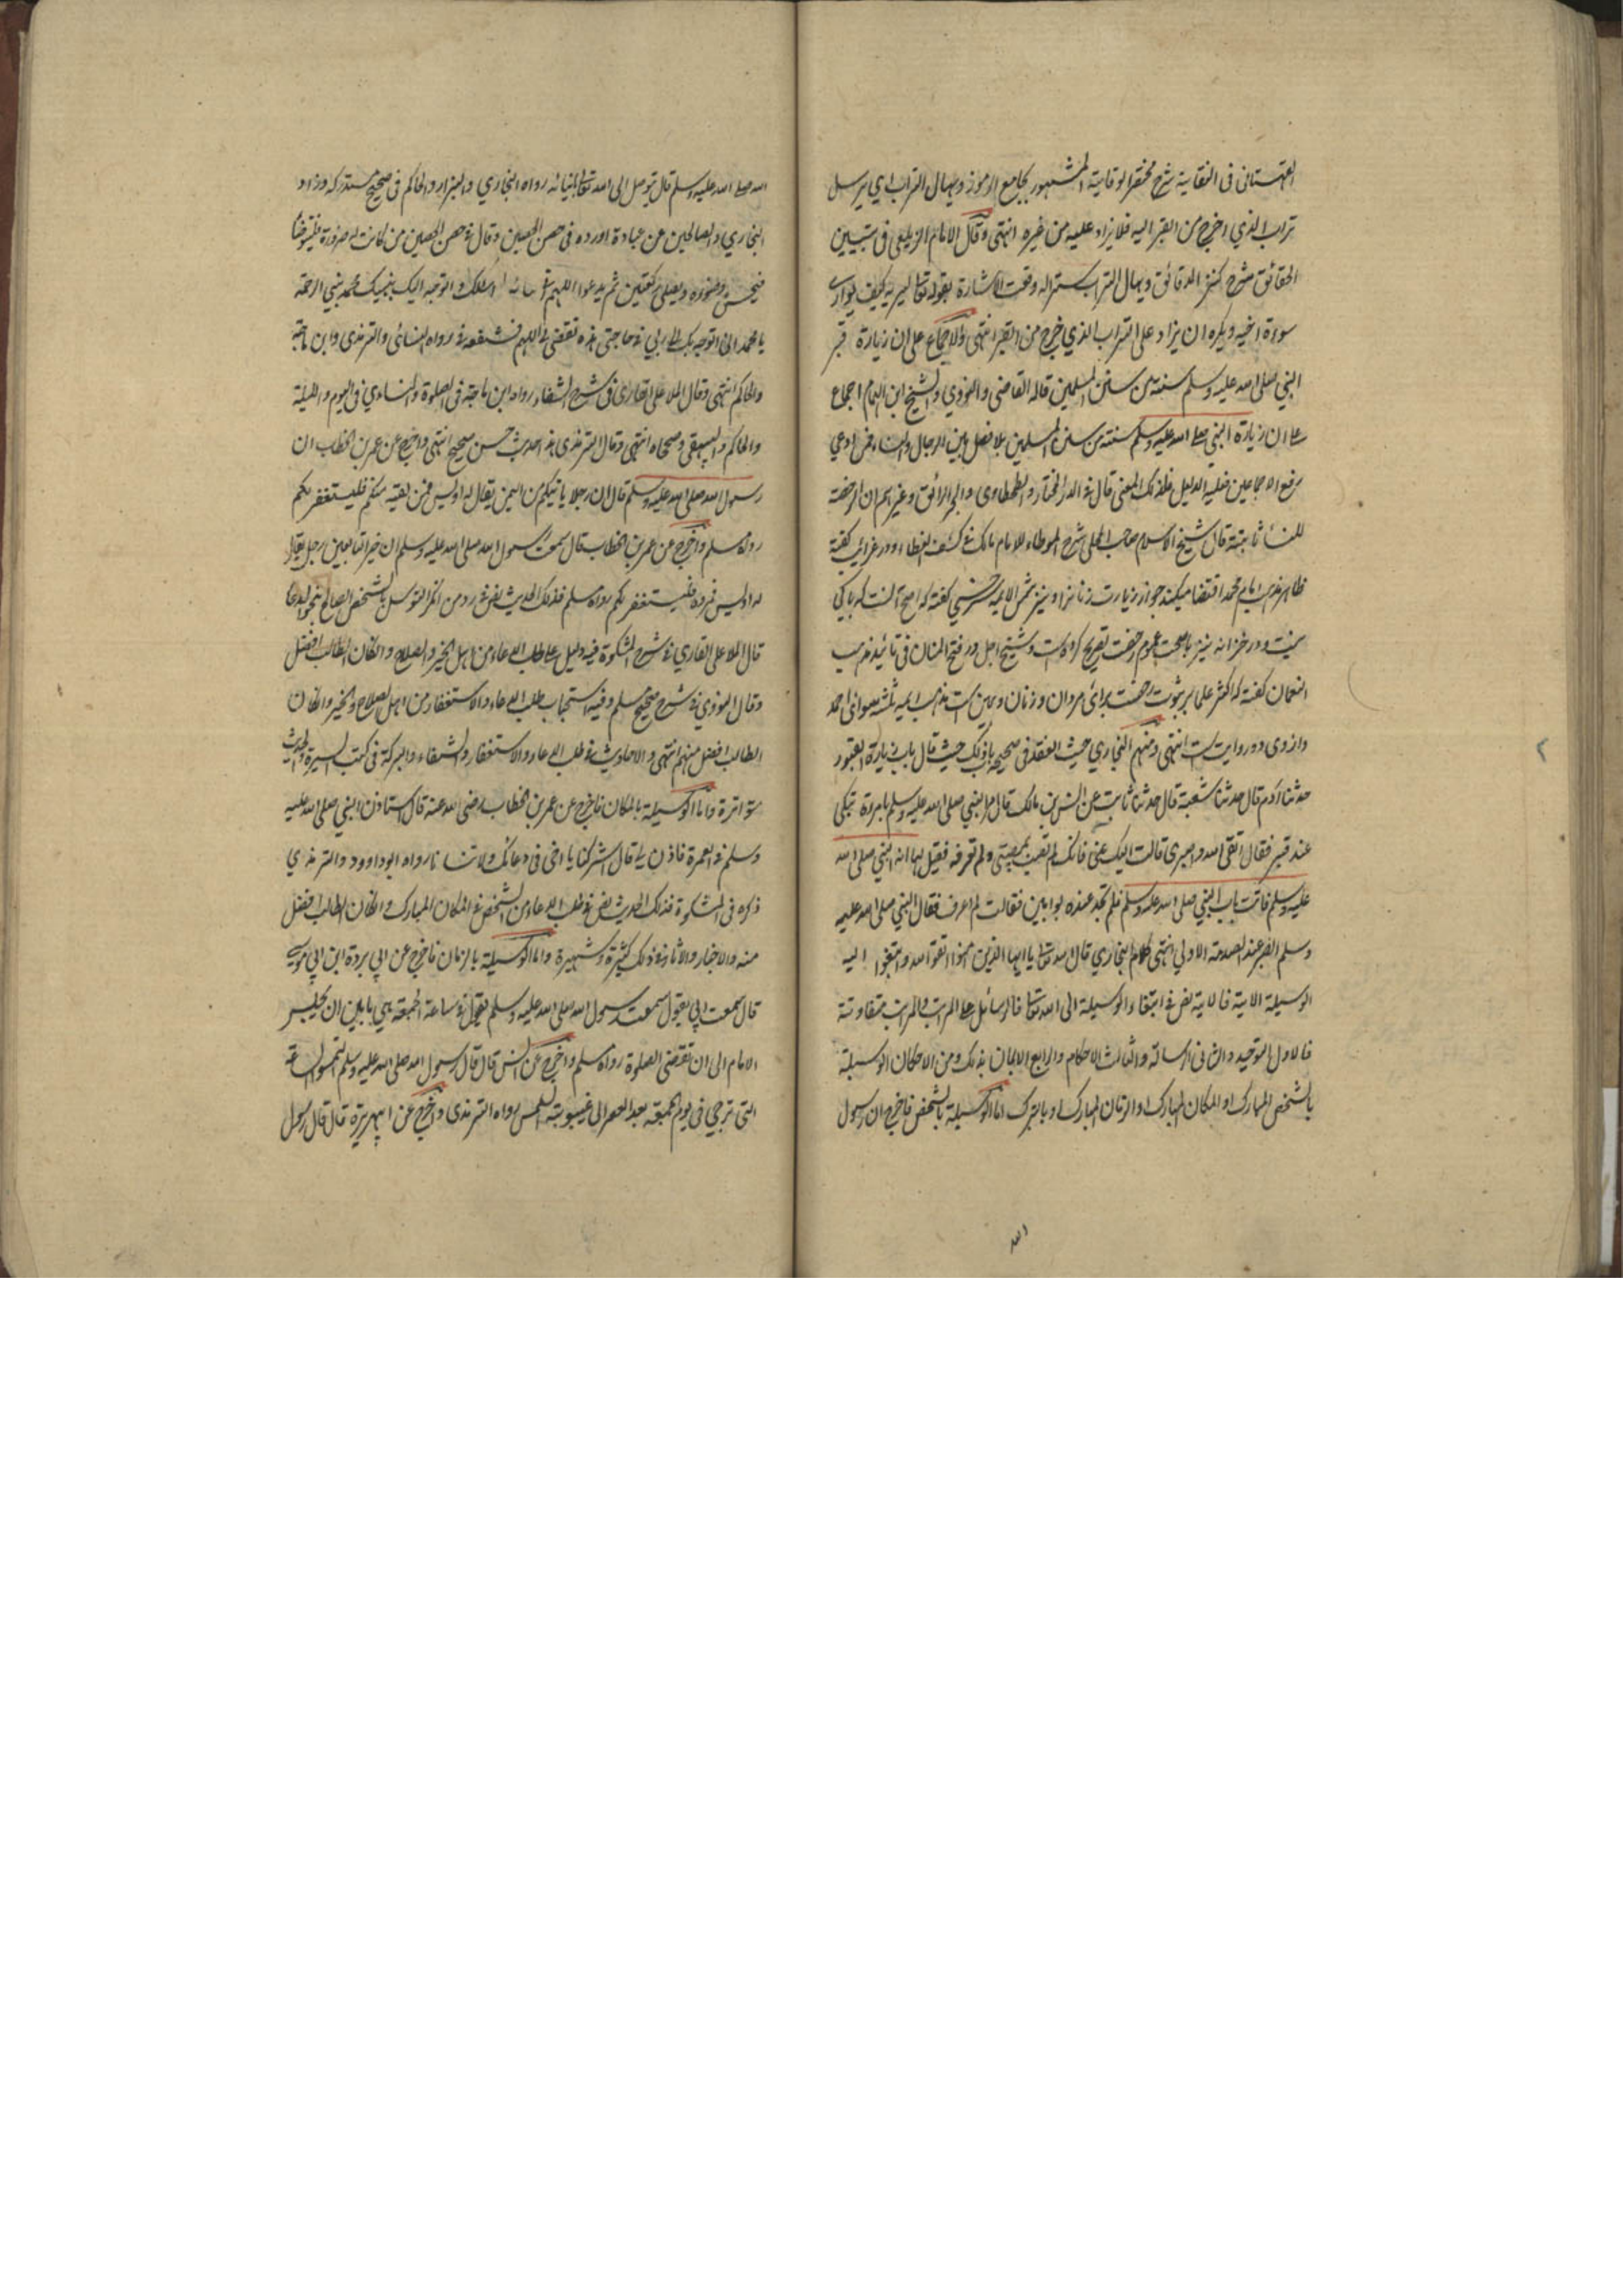 القهستانى فى النقاية شرح مختصر الوقاية المشهور بجامع الرموز ويهال التراب اي يرسل
تراب الذي اخرج من القبر اليه فلا يزاد عليه من غيره انتهى وقال الامام الزيلعى فى تبيين
الحقائق شرح كنز الدقائق ويهال التراب سترا له وقعت الاشارة بقوله تعا ليريه كيف يواري
سوءة اخيه ويكره ان يزاد على التراب الذي خرج من القبر انتهى والاجماع على ان زيارة قبر
النبي صلى الله عليه وسلم سنة من سنن المسلمين قاله القاضى والنووي والشيخ ابن الهمام اجماع
على ان زيارة النبي صلى الله عليه وسلم سنة من سنن المسلمين بلا فصل بين الرجال والنساء فمن ادعي
رفع الاجماعين فعليه الدليل فلذلك المعنى قال فى الدر المختار والطحطاوى والبحر الرائق وغيرهم ان الرخصة
للنساء ثابتة قال شيخ الاسلام صاحب المحلى شرح الموطاء للامام مالك فى كشف الغطاء ودر غرائب كفته
ظاهر مذهب امام محمد اقتضا ميكند جواز زيارت زنانرا ونيز شمس الايمه سرخسي كفته كه اصح آنست كه باكي
نيست ودر خزانه نيز بصحت عموم رخصت تصريح كرده است وشيخ اجل در فتح المنان فى تائيد مذهب
النعمان كفته كه اكثر علما بر ثبوت رخصت براى مردان وزنان وهمين ست مذهب ايمه ثلثه سواى احمد
وازوى دو روايت ست انتهى ومنهم البخاري حيث العقد فى صحيحه باذلك حيث قال باب زيارة القبور
حدثنا آدم قال حدثنا شعبة قال حدثنا ثابت عن انس بن مالك قال مر النبي صلى الله عليه وسلم بامرءة تبكى
عند قبر فقال اتقى الله واصبري قالت اليك عنى فانك لم تصب بمصيبتى ولم تعرفه فقيل لها انه النبي صلى الله
عليه وسلم فاتت باب النبي صلى الله عليه وسلم فلم تجد عنده بوابين فقالت لم اعرفك فقال النبي صلى الله عليه
وسلم الصبر عند الصدمة الاولى انتهى كلام البخاري قال الله تعا يا ايها الذين امنوا اتقوا الله وابتغوا اليه
الوسيلة الاية فالاية نص فى ابتغاء الوسيلة الى الله تعا فالوسائل على المراتب والمراتب متفاوتة
فالاول التوحيد والثانى الرسالة والثالث الاحكام والرابع الايمان بذلك ومن الاحكام الوسيلة
بالشخص المبارك او المكان المبارك او الزمان المبارك او بالتبرك اما الوسيلة بالشخص فاخرج ان رسول
الله
٢
الله صلى الله عليه وسلم قال توصل الى الله تعا بانبيائه رواه البخاري والبزار والحاكم فى صحيح مستدركه وزاد
البخاري والصالحين من عباده اورده فى حصن الحصين وقال فى حصن الحصين من كانت له ضرورة فليتوضأ
فيحسن وضوءه ويصلى ركعتين ثم يدعوا اللهم انى اسئلك واتوجه اليك بنبيك محمد نبي الرحمة
يا محمد انى اتوجه بك الى ربي فى حاجتى هذه لتقضى لى اللهم فشفعه فى رواه النسائى والترمذى وابن ماجة
والحاكم انتهى وقال الملا على القارى فى شرح الشفاء رواه ابن ماجة فى الصلوة والنساءي فى اليوم والليلة
والحاكم والبيهقى وصححاه انتهى وقال الترمذى هذا حديث حسن صحيح انتهى واخرج عن عمر بن الخطاب ان
رسول الله صلى الله عليه وسلم قال ان رجلا ياتيكم من اليمن يقال له اويس فمن لقيه منكم فليستغفر لكم
رواه مسلم واخرج عن عمر بن الخطاب قال سمعت رسول الله صلى الله عليه وسلم ان خير التابعين رجل يقال
له اويس فمروه فليستغفر لكم رواه مسلم فذلك الحديث نص رد من انكر التوسل بالشخص الصالح
قال الملا على القاري فى شرح المشكوة فيه دليل على طلب الدعاء من اهل الخير والصلاح وان كان الطالب افضل
وقال النووي فى شرح صحيح مسلم وفيه استحباب طلب الدعاء والاستغفار من اهل الصلاح والخير وان كان
الطالب افضل منهم انتهى والاحاديث فى طلب الدعاء والاستغفار والشفاء والبركة فى كتب السيرة والحديث
متواترة واما الوسيلة بالمكان فاخرج عن عمر بن الخطاب رضى الله عنه قال استاذن النبي صلى الله عليه
وسلم فى العمرة فاذن لى قال اشركنا يا اخى فى دعائك ولا تنسانا رواه ابوداوود والترمذي
ذكره فى المشكوة فذلك الحديث نص فى طلب الدعاء من الشخص فى المكان المبارك وان كان الطالب افضل
منه والاخبار والاثار فى ذلك كثيرة وشهيرة واما الوسيلة بالزمان فاخرج عن ابي بردة ابن ابي موسى
قال سمعت ابي يقول سمعت رسول الله صلى الله عليه وسلم يقول فى ساعة الجمعة هى ما بين ان يجلس
الامام الى ان تقضى الصلوة رواه مسلم واخرج عن انس قال قال رسول الله صلى الله عليه وسلم التمسوا الساعة
التى ترجي فى يوم الجمعة بعد العصر الى غيبوبة الشمس رواه الترمذى واخرج عن ابيهريرة قال قال رسول